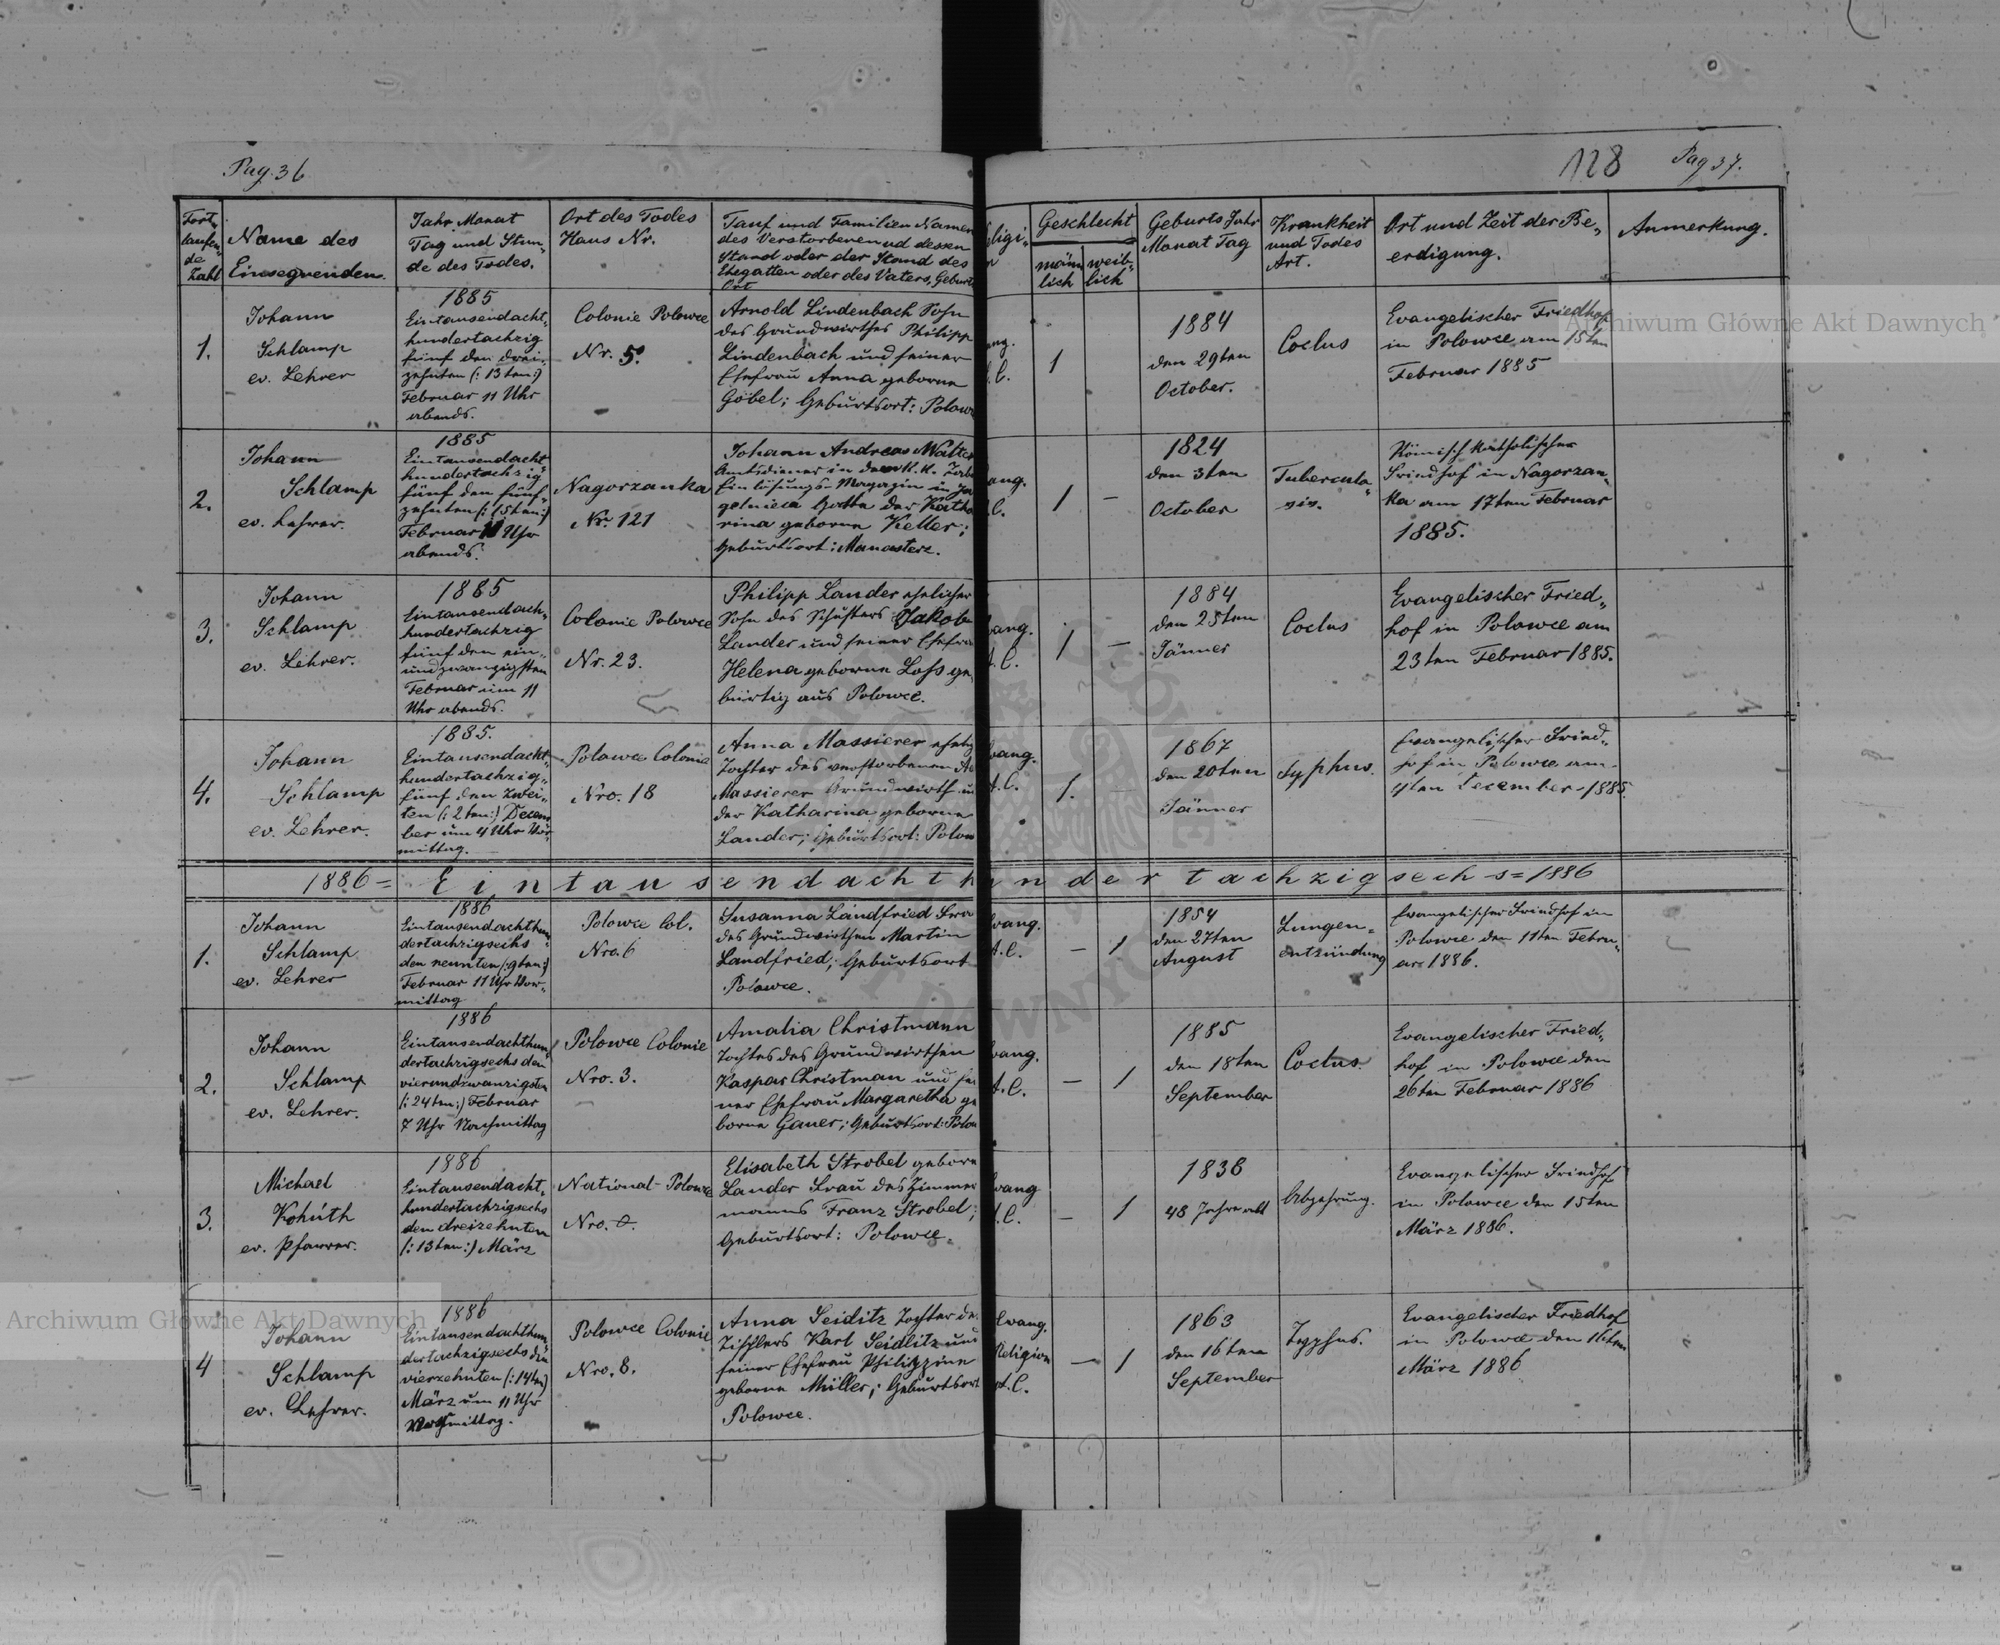 Pag. 36
128
Pag 37.
Fort-
laufen-
de
Zahl
Name des
Einsegnenden
Jahr, Monat
Tag und Stun-
de des Todes.
Ort des Todes
Haus Nr.
Tauf und Familien Namen
des Verstorbenen ud dessen
Stand oder der Stand des
Ehegatten oder des Vaters, Geburts
Ort
Geschlecht
männ-
lich
weib-
lich
Geburts Jahr
Monat Tag
Krankheit
und Todes
Art.
Ort und Zeit der Be-
erdigung.
Anmerkung.
1.
Johann
Schlamp
ev. Lehrer
1885
Eintausendacht-
hundertachzig
fünf den drei-
zehnten (: 13ten :)
Februar 11 Uhr
abends.
Colonie Polowce
Nr. 5.
Arnold Lindenbach Sohn
des Grundwirthes Philipp
Lindenbach und seiner
Ehefrau Anna geborne
Göbel; Geburtsort: Polow
1
1884
den 29ten
October.
Coclus
Evangelischer Friedhof
in Polowce am 15ten
Februar 1885
2.
Johann
Schlamp
ev. Lehrer.
1885
Eintausendacht
hundertachzig
fünf den fünf-
zehnten (: 15ten :)
Februar Uhr
abends.
Nagorzanka
Nr. 121
Johann Andreas Walter
Amtsdiener in dem K. K. Tab
Einlösungs-Magazin in Ja
gelnica Gatte der Katha
rina geborne Keller;
Geburtsort: Manasterz.
ang.
1 -
1824
den 3ten
October
Tubercula-
sis.
Römisch Katholischer
Friedhof in Nagorzan-
ka am 17ten Februar
1885.
3.
Johann
Schlamp
ev. Lehrer.
1885
Eintausendach-
hundertachzig
fünf den ein-
undzwanzigsten
Februar um 11
Uhr abends.
Colonie Polowce
Nr. 23.
Philipp Lander ehelicher
Sohn des Schusters Jakob
Lander und seiner Ehefra
Helena geborne Loss ge-
bürtig aus Polowce.
vang.
1 -
1884
den 25ten
Jänner
Coclus
Evangelischer Fried-
hof in Polowce am
23ten Februar 1885.
4.
Johann
Schlamp
ev. Lehrer.
1885.
Eintausendacht-
hundertachzig-
fünf den zwei-
ten (: 2ten :) Decem
ber um 4 Uhr Vor-
mittag.
Polowce Colonie
Nro. 18
Anna Massierer
Tochter des verstorbenen
Massierer Grundwirth u
der Katharina geborne
Lander; Geburtsort: Polow
vang.
A. C.
1.
1867
den 20ten
Jänner
Typhus.
Evangelischer Fried-
hof in Polowce am
4ten December 1885.
1886 = Eintausendachthundertachzigsechs = 1886
1.
Johann
Schlamp
ev. Lehrer
1886
Eintausendachthun-
dertachzigsechs
den neunten (: 9ten :)
Februar 11 Uhr Vor-
mittag
Polowce Col.
Nro. 6
Susanna Landfried Fra
des Grundwirthen Martin
Landfried; Geburtsort
Polowce.
vang.
A. C.
- 1
1854
den 27ten
August
Lungen-
entzündung
Evangelischer Friedhof in
Polowce den 11ten Febru-
ar 1886.
2.
Johann
Schlamp
ev. Lehrer.
1886
Eintausendachthun-
dertachzigsechs den
vierundzwanzigsten
(: 24ten :) Februar
7 Uhr Nachmittag
Polowce Colonie
Nro. 3.
Amalia Christmann
Tochter des Grundwirthen
Kaspar Christman und sei
ner Ehefrau Margaretha ge
borne Gauer; Geburtsort: Polow
vang.
A. C.
- 1
1885
den 18ten
September
Coclus.
Evangelischer Fried-
hof in Polowce den
26ten Februar 1886
3.
Michael
Kohuth
ev. Pfarrer.
1886
Eintausendacht-
hundertachzigsechs
den dreizehnten
(: 13ten :) März
National-Polowce
Nro. 0.
Elisabeth Strobel geborn
Lander Frau des Zimmer
manns Franz Strobel;
Geburtsort: Polowce.
vang
A. C.
- 1
1838
48 Jahre alt
Abzehrung.
Evangelischer Friedhof
in Polowce den 15ten
März 1886.
4
Johann
Schlamp
ev. Lehrer.
1886
Eintausendachthun-
dertachzigsechs den
vierzehnten (: 14ten :)
März um 11 Uhr
Vormittag.
Polowce Colonie
Nro. 8.
Anna Seidlitz Tochter des
Tischlers Karl Seidlitz und
seiner Ehefrau Philippine
geborne Müller; Geburtsort
Polowce.
Evang.
Religion
A. C.
- 1
1863
den 16ten
September
Typhus.
Evangelischer Friedhof
in Polowce den 16ten
März 1886
Archiwum Główne Akt Dawnych
Archiwum Główne Akt Dawnych